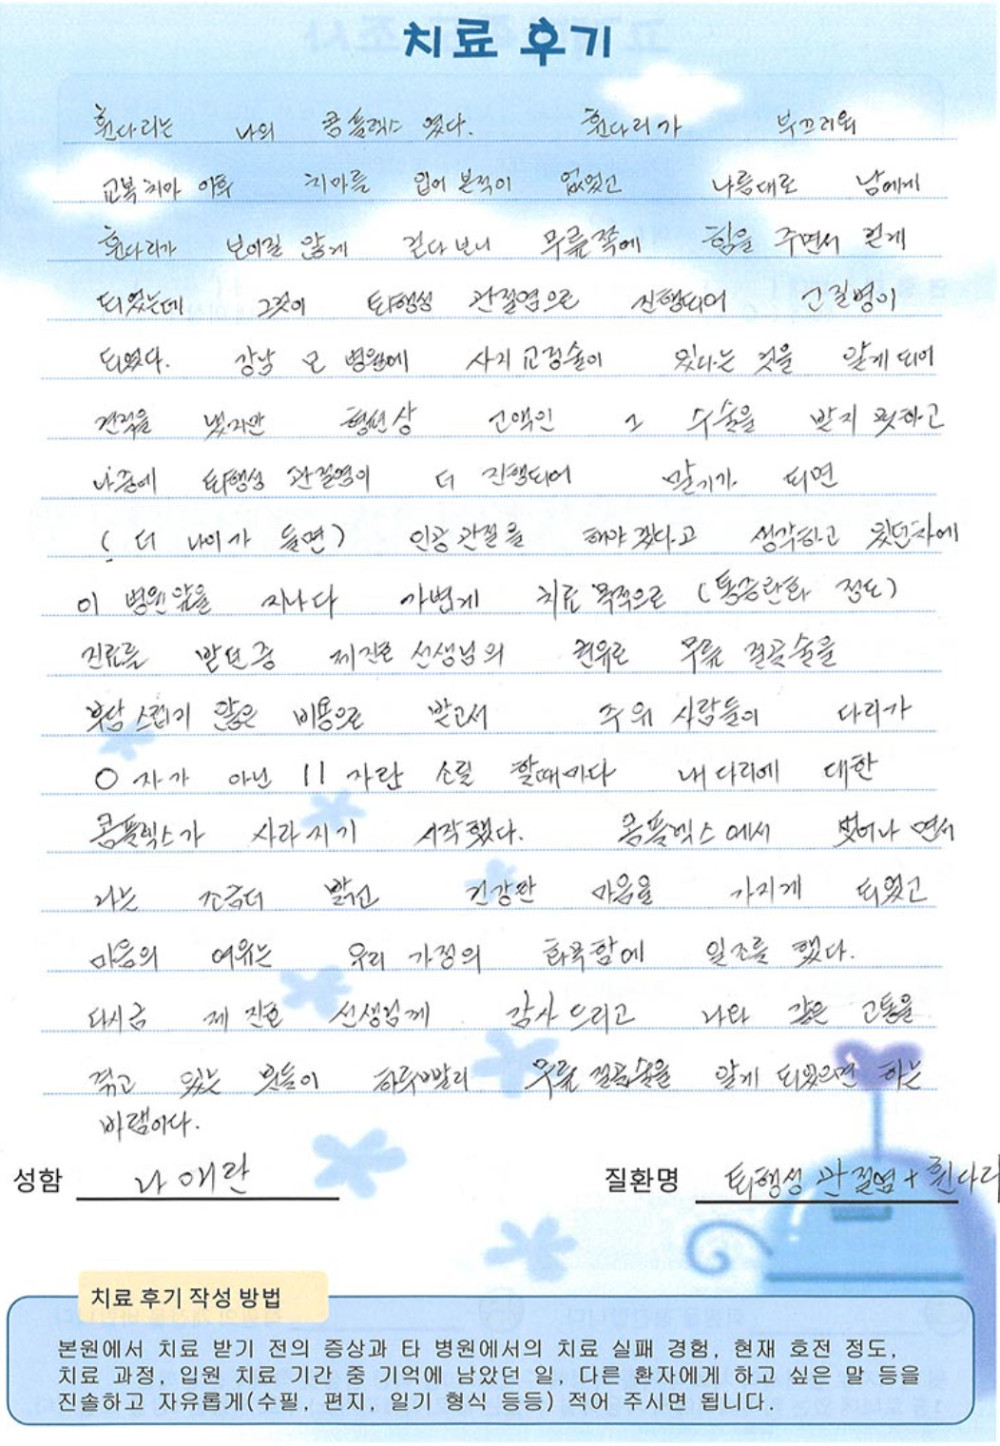 치료 후기
휜다리는 나의 콤플렉스 였다. 휜다리가 부끄러워
교복치마 이후 치마를 입어 본적이 없었고 나름대로 남에게
휜다리가 보이질 않게 걷다보니 무릎쪽에 힘을 주면서 걷게
되었는데 그것이 퇴행성 관절염으로 진행되어 고질병이
되였다. 강남 모 병원에 사지교정술이 있다는 것을 알게 되어
견적을 냈지만 형편상 고액인 그 수술을 받지 못하고
나중에 퇴행성 관절염이 더 진행되어 말기가 되면
( 더 나이가 들면 ) 인공관절을 해야 겠다고 생각하고 있던차에
이 병원앞을 지나다 가볍게 치료 목적으로 (통증완화 정도)
진료를 받던중 제진호 선생님의 권유로 무릎 절골술을
부담스럽지 않은 비용으로 받고서 주위 사람들이 다리가
O 자가 아닌 11 자란 소릴 할때마다 내 다리에 대한
콤플렉스가 사라지기 시작했다. 콤플렉스에서 벗어나면서
나는 조금더 밝고 건강한 마음을 가지게 되었고
마음의 여유는 우리 가정의 화목함에 일조를 했다.
다시금 제진호 선생님께 감사드리고 나와 같은 고통을
겪고 있는 분들이 하루빨리 무릎 절골술을 알게 되었으면 하는
바램이다.
성함 나애란 질환명 퇴행성 관절염 + 휜다리
치료 후기 작성 방법
본원에서 치료 받기 전의 증상과 타 병원에서의 치료 실패 경험, 현재 호전 정도,
치료 과정, 입원 치료 기간 중 기억에 남았던 일, 다른 환자에게 하고 싶은 말 등을
진솔하고 자유롭게(수필, 편지, 일기 형식 등등) 적어 주시면 됩니다.